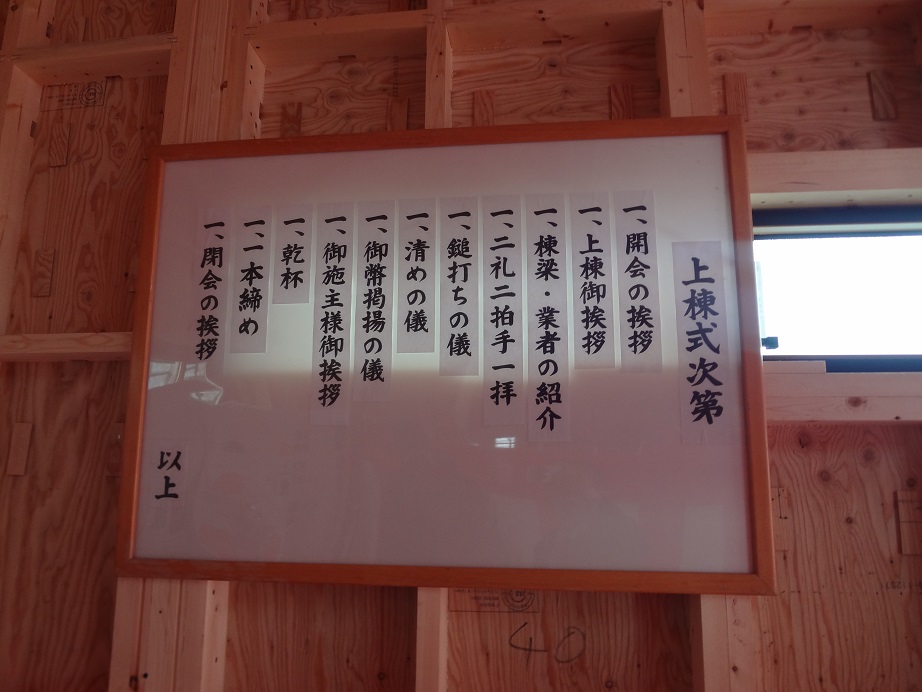 上棟式次第
一、開会の挨拶
一、上棟御挨拶
一、棟梁・業者の紹介
一、二礼二拍手一拝
一、鎚打ちの儀
一、清めの儀
一、御幣掲揚の儀
一、御施主様御挨拶
一、乾杯
一、一本締め
一、閉会の挨拶
以上
40